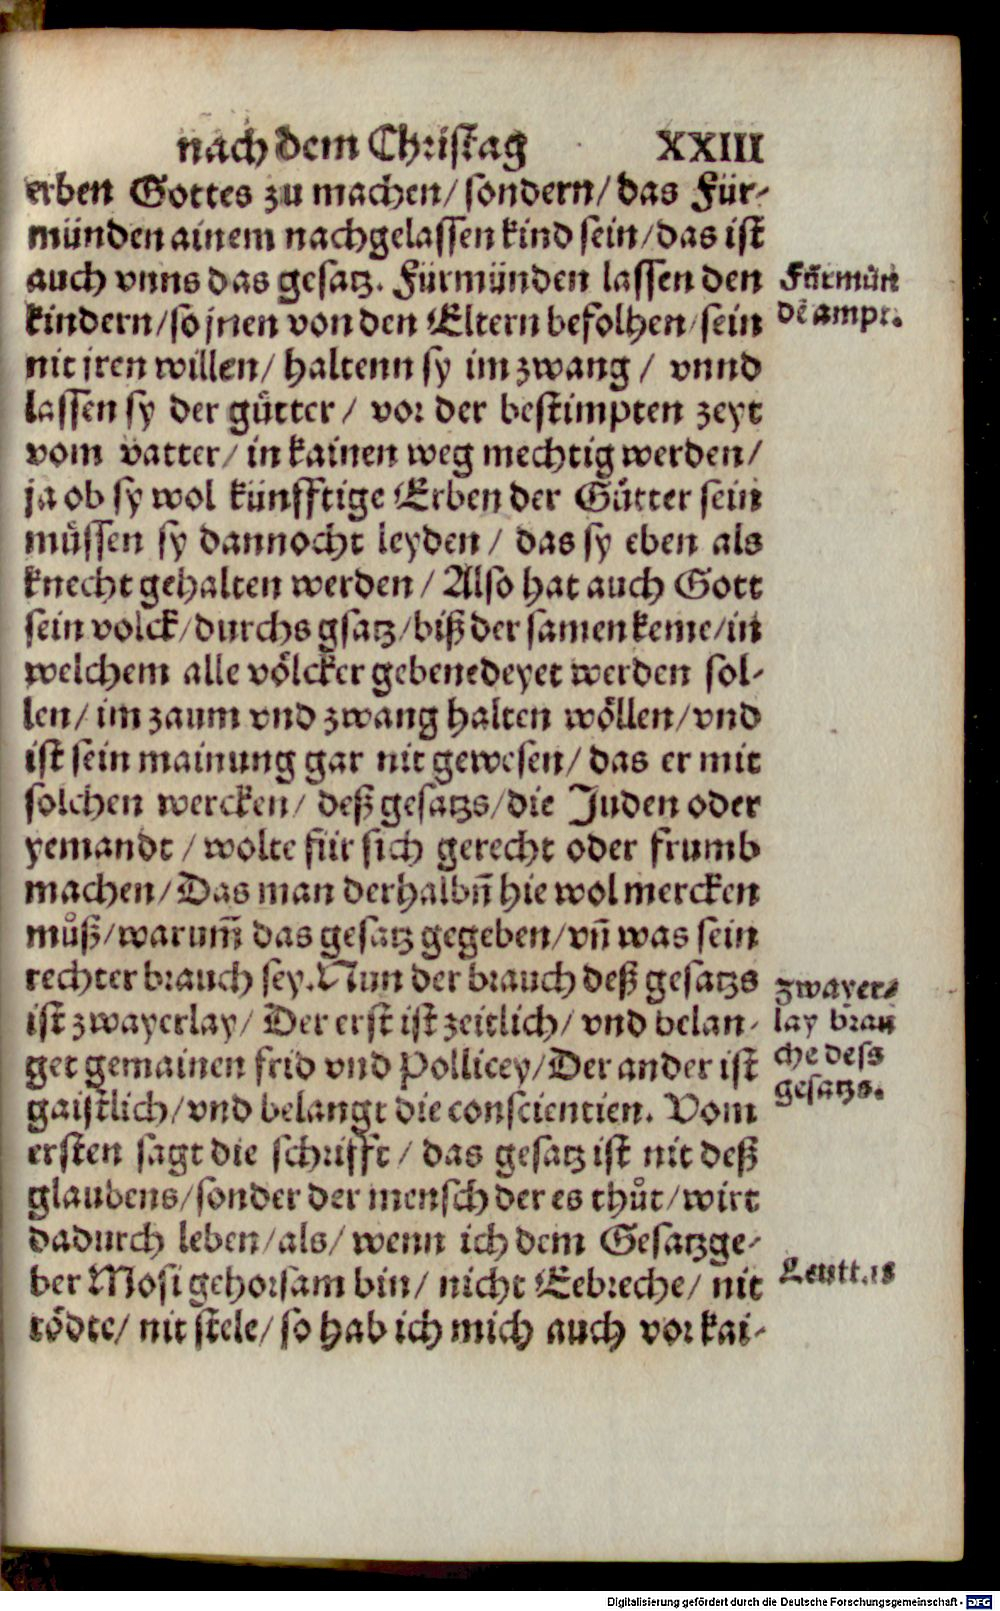 nach dem Christag XXIII
erben Gottes zu machen/ sondern/ das Für-
münden ainem nachgelassen kind sein/ das ist
auch vnns das gesatz. Fürmünden lassen den
kindern/ so jnen von den Eltern befolhen/ sein
nit jren willen/ haltenn sy im zwang/ vnnd
lassen sy der gütter/ vor der bestimpten zeyt
vom vatter/ in kainen weg mechtig werden/
ja ob sy wol künfftige Erben der Gütter sein
müssen sy dannocht leyden/ das sy eben als
knecht gehalten werden/ Also hat auch Gott
sein volck/ durchs gsatz/ biß der samen keme/ in
welchem alle völcker gebenedeyet werden sol-
len/ im zaum vnd zwang halten wöllen/ vnd
ist sein mainung gar nit gewesen/ das er mit
solchen wercken/ deß gesatzs/ die Juden oder
yemandt/ wolte für sich gerecht oder frumb
machen/ Das man derhalbñ hie wol mercken
můß/ warum̃ das gesatz gegeben/ vñ was sein
rechter brauch sey. Nun der brauch deß gesatzs
ist zwayerlay/ Der erst ist zeitlich/ vnd belan-
get gemainen frid vnd Pollicey/ Der ander ist
gaistlich/ vnd belangt die conscientien. Vom
ersten sagt die schrifft/ das gesatz ist nit deß
glaubens/ sonder der mensch der es thůt/ wirt
dadurch leben/ als/ wenn ich dem Gesatzge-
ber Mosi gehorsam bin/ nicht Eebreche/ nit
tödte/ nit stele/ so hab ich mich auch vor kai-
Fürmün
dẽ ampt.
zwayer-
lay brau
che dess
gesatzs.
Leuit. 18
Digitalisierung gefördert durch die Deutsche Forschungsgemeinschaft - DFG